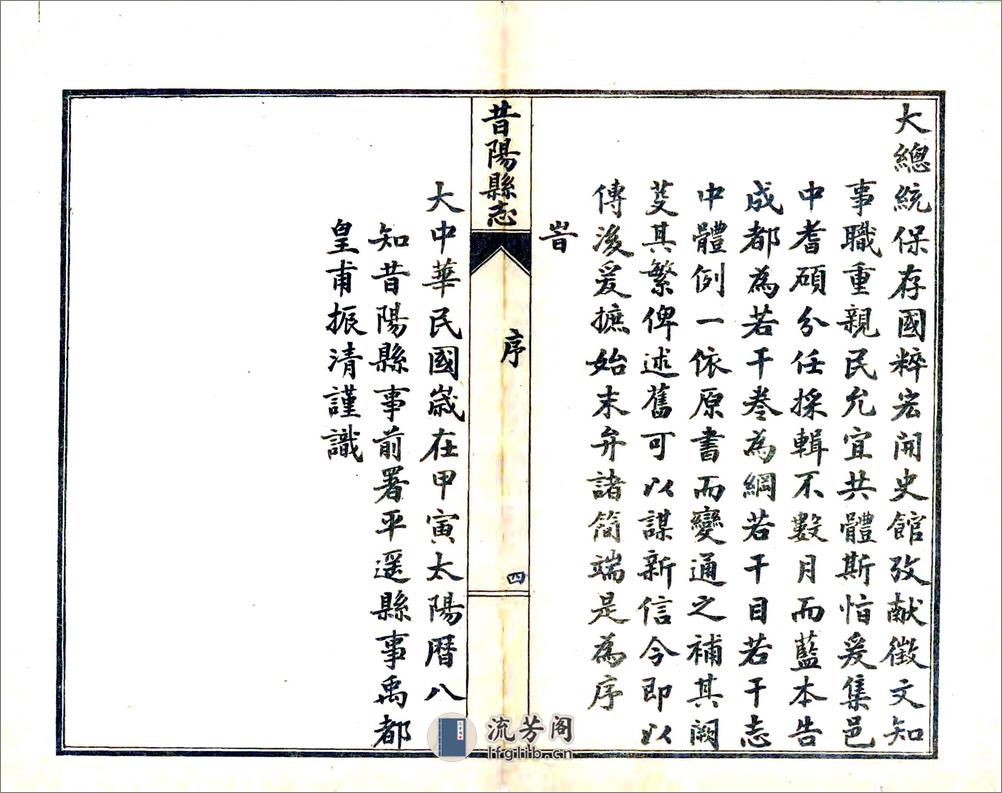 大總統保存國粹宏開史館攷献徵文知
事職重親民允宜共體斯恉爰集邑
中耆碩分任採輯不數月而藍本告
成都為若干卷為綱若干目若干志
中體例一依原書而變通之補其闕
芟其繁俾述舊可以謀新信今即以
傳後爰摭始末弁諸簡端是為序
旹
昔陽縣志
序
四
大中華民國歲在甲寅太陽曆八
知昔陽縣事前署平遥縣事禹都
皇甫振清謹識
流芳阁
lfglib.cn